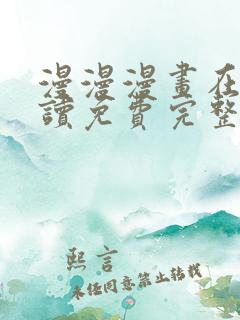 漫漫漫畫在
讀免費完整
熙言
未任同意禁止转载